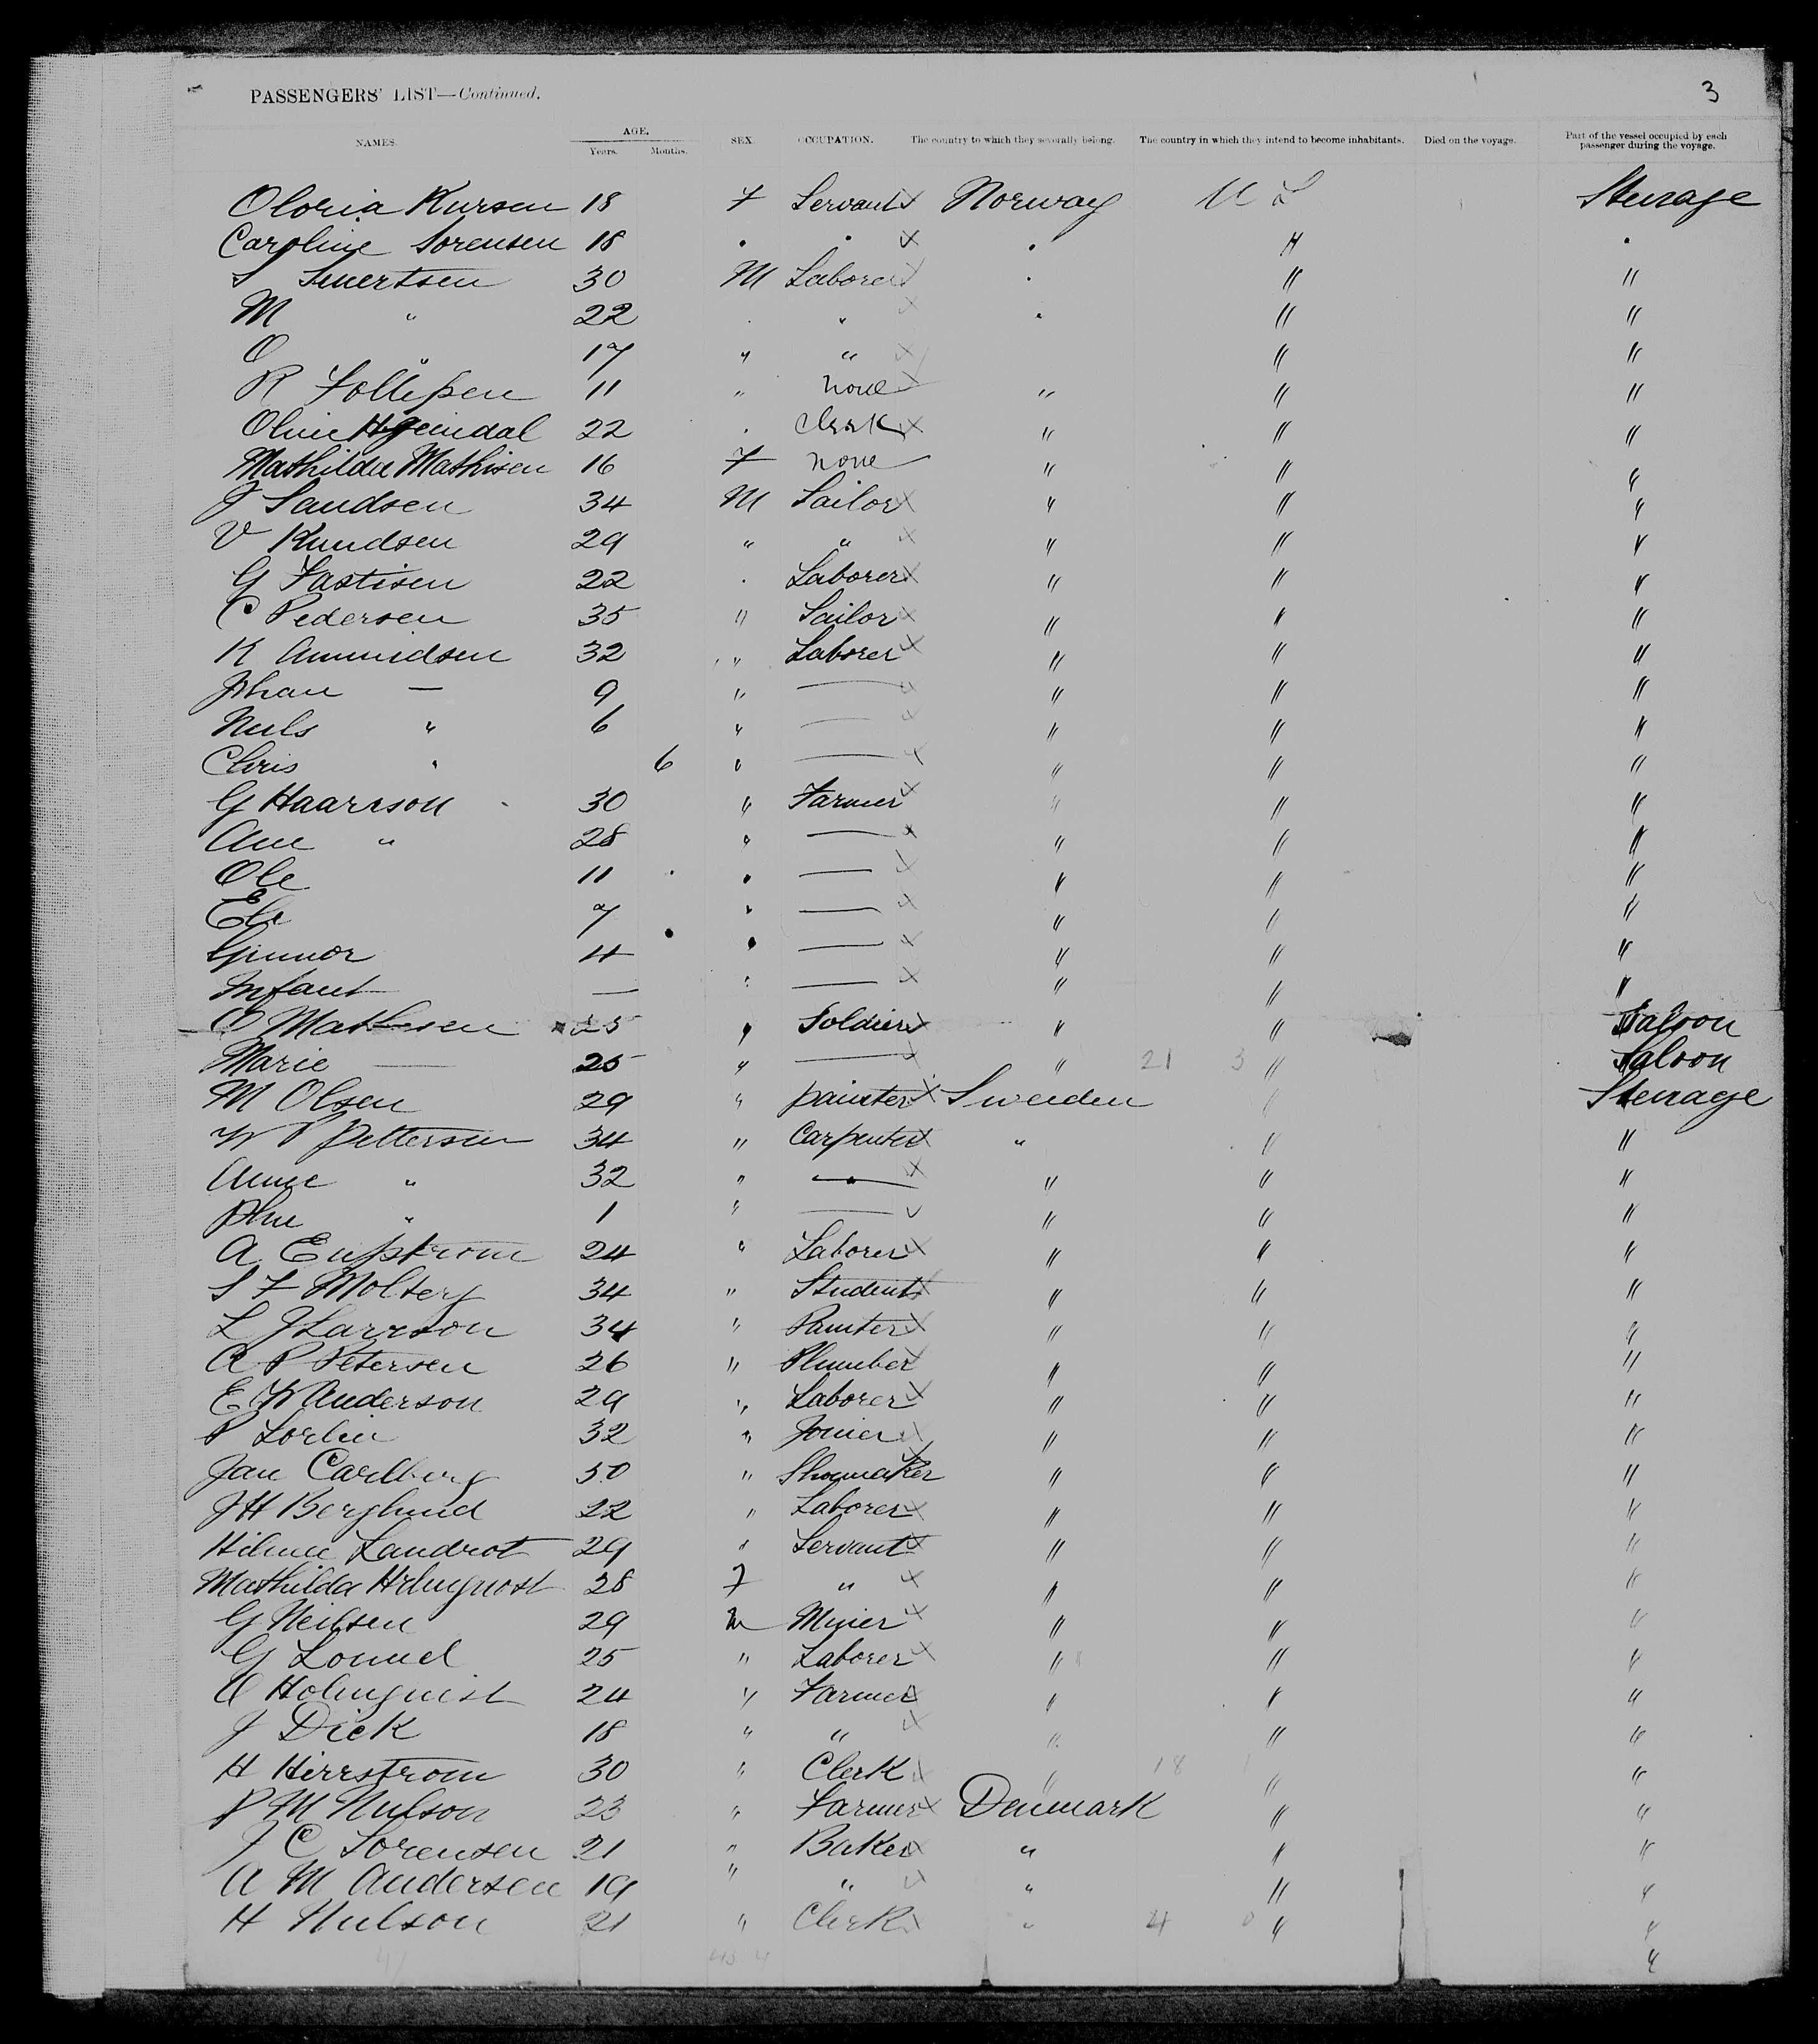 PASSENGERS' LIST—Continued.
3
NAMES. AGE. Years. Months. SEX. OCCUPATION. The country to which they severally belong. The country in which they intend to become inhabitants. Died on the voyage. Part of the vessel occupied by each passenger during the voyage.
Oloria Kursen 18 F Servant x Norway U S Steerage
Caroline Sorensen 18 " " x " " "
S Sivertsen 30 M Laborer x " " "
M " 22 " " x " " "
O " 17 " " x " "
R Tollefsen 11 " none x " " "
22 " Clerk x " " "
Mathilda Mathisen 16 F none " " "
J Sandsen 34 M Sailor x " " "
V Knudsen 29 " " x " " "
G 22 " Laborer x " " "
C Pedersen 35 " Sailor x " " "
K Amundsen 32 " Laborer x " " "
Johan — 9 " — x " " "
Neils " 6 " — x " " "
Chris " 6 " — x " " "
G Haarrson 30 " Farmer x " " "
Ane " 28 " — x " " "
Ole 11 " — x " " "
7 " — x " " "
Gunnor 4 " — x " " "
Infant — " — x " " "
O Mathesen 25 " Soldier x " " Saloon
Marie — 25 " — x " 21 3 " Saloon
M Olsen 29 " painter x Sweden " Steerage
W P Petterson 34 " Carpenter x " " "
Anne " 32 " — x " " "
" 1 " — " " "
A 24 " Laborer x " " "
S F Molberg 34 " Student x " " "
L J Larrson 34 " Painter x " " "
A P Petersen 26 " Plumber x " " "
E W Anderson 29 " Laborer x " " "
P 32 " Joiner x " " "
Jan Carlberg 50 " Shoemaker x " " "
J H Berglund 22 " Laborer x " " "
Landrot 29 " Servant x " " "
Mathilda 28 F " x " " "
G Neilsen 29 M Miner x " " "
G 25 " Laborer x " " "
O Holmquist 24 " Farmer x " " "
J Dick 18 " " x " " "
H Herrstrom 30 " Clerk x " 18 1 " "
P M Nielson 23 " Farmer x Denmark " "
J C Sorensen 21 " Baker x " " "
A M Andersen 19 " " x " " "
H Nielson 21 " Clerk x " 4 0 " "
"